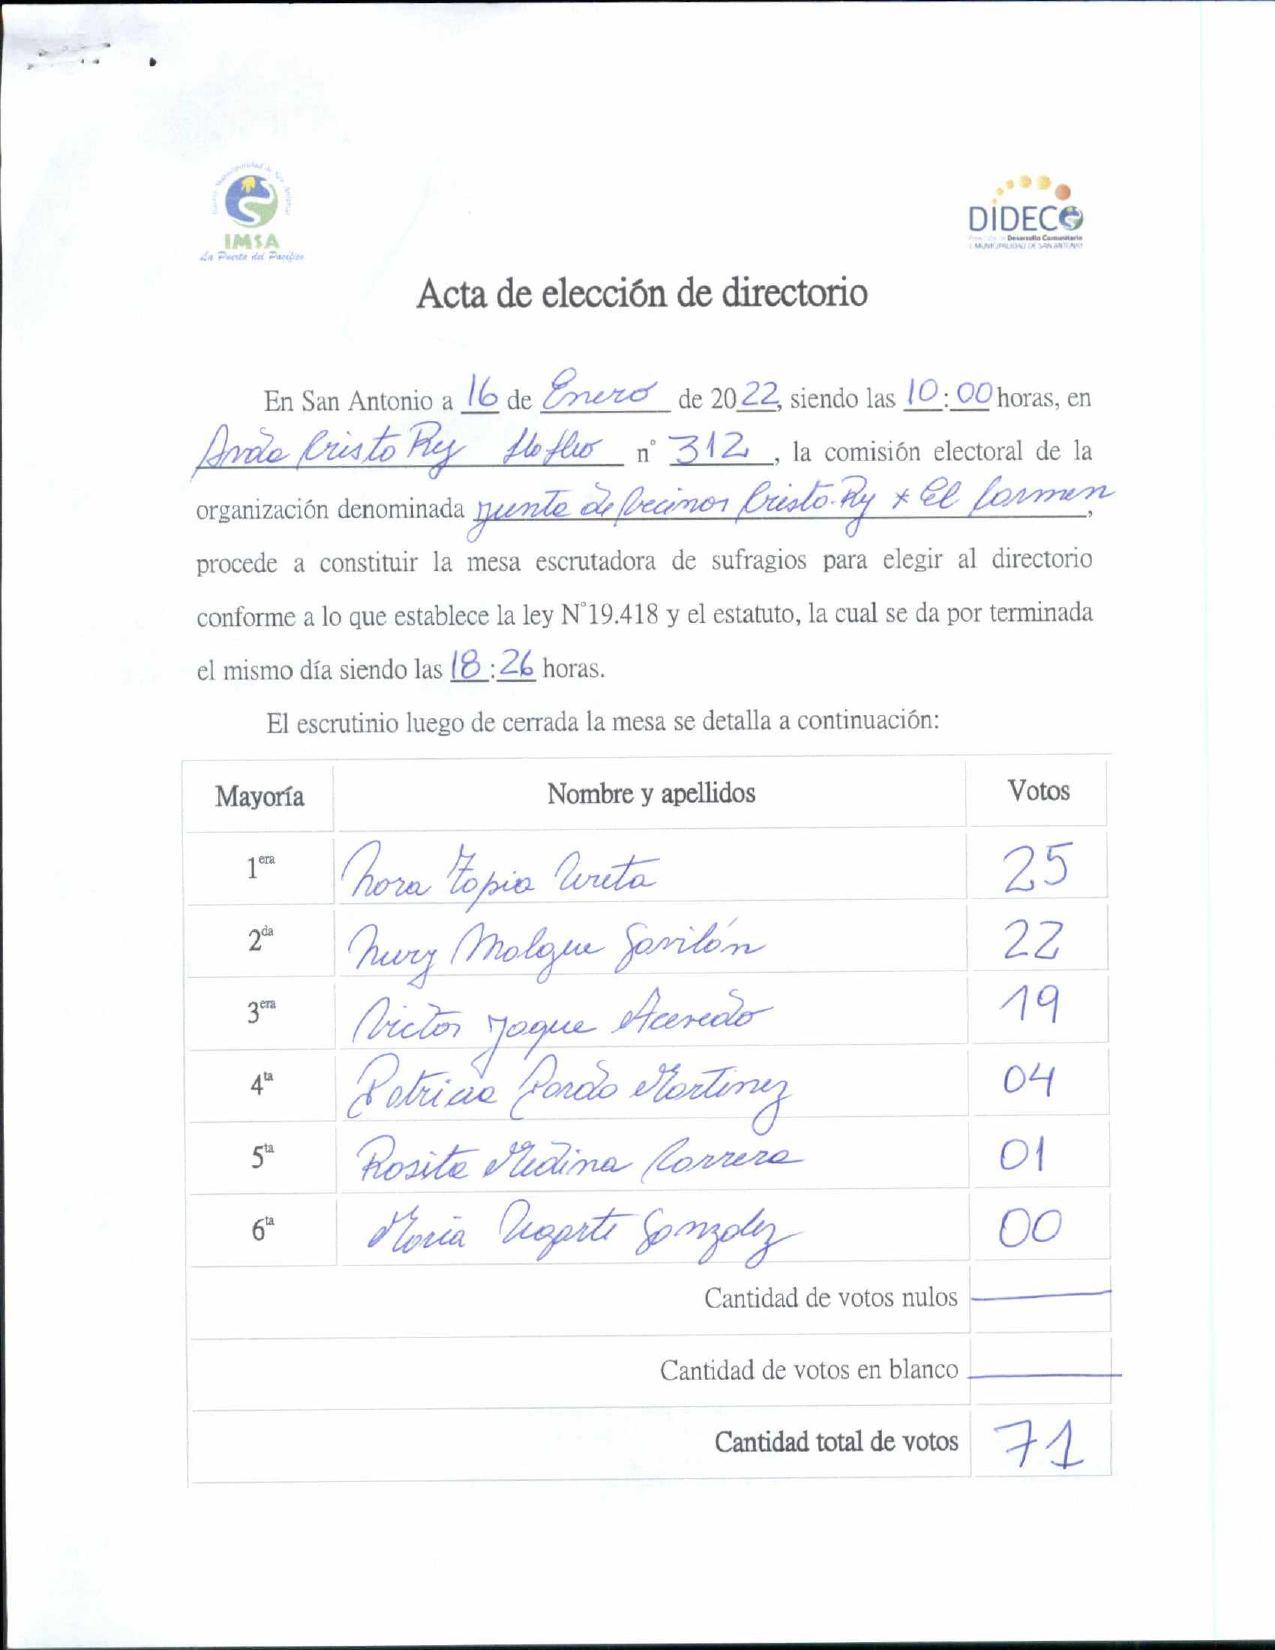 IMSA
La Puerta del Pacífico
DIDECO
Desarrollo Comunitario
I. MUNICIPALIDAD DE SAN ANTONIO
Acta de elección de directorio
En San Antonio a 16 de Enero de 2022, siendo las 10:00 horas, en
Avda Cristo Rey Llolleo n° 312, la comisión electoral de la
organización denominada junta de vecinos Cristo-Rey * El Carmen,
procede a constituir la mesa escrutadora de sufragios para elegir al directorio
conforme a lo que establece la ley N°19.418 y el estatuto, la cual se da por terminada
el mismo día siendo las 18:26 horas.
El escrutinio luego de cerrada la mesa se detalla a continuación:
Mayoría Nombre y apellidos Votos
1era Nora Topia Ureta 25
2da Nury Molgue Gavilón 22
3era Victor Jaque Acevedo 19
4ta Patricia Pardo Martinez 04
5ta Rosita Medina Carrera 01
6ta Maria Ugarte Gonzalez 00
Cantidad de votos nulos
Cantidad de votos en blanco
Cantidad total de votos 71